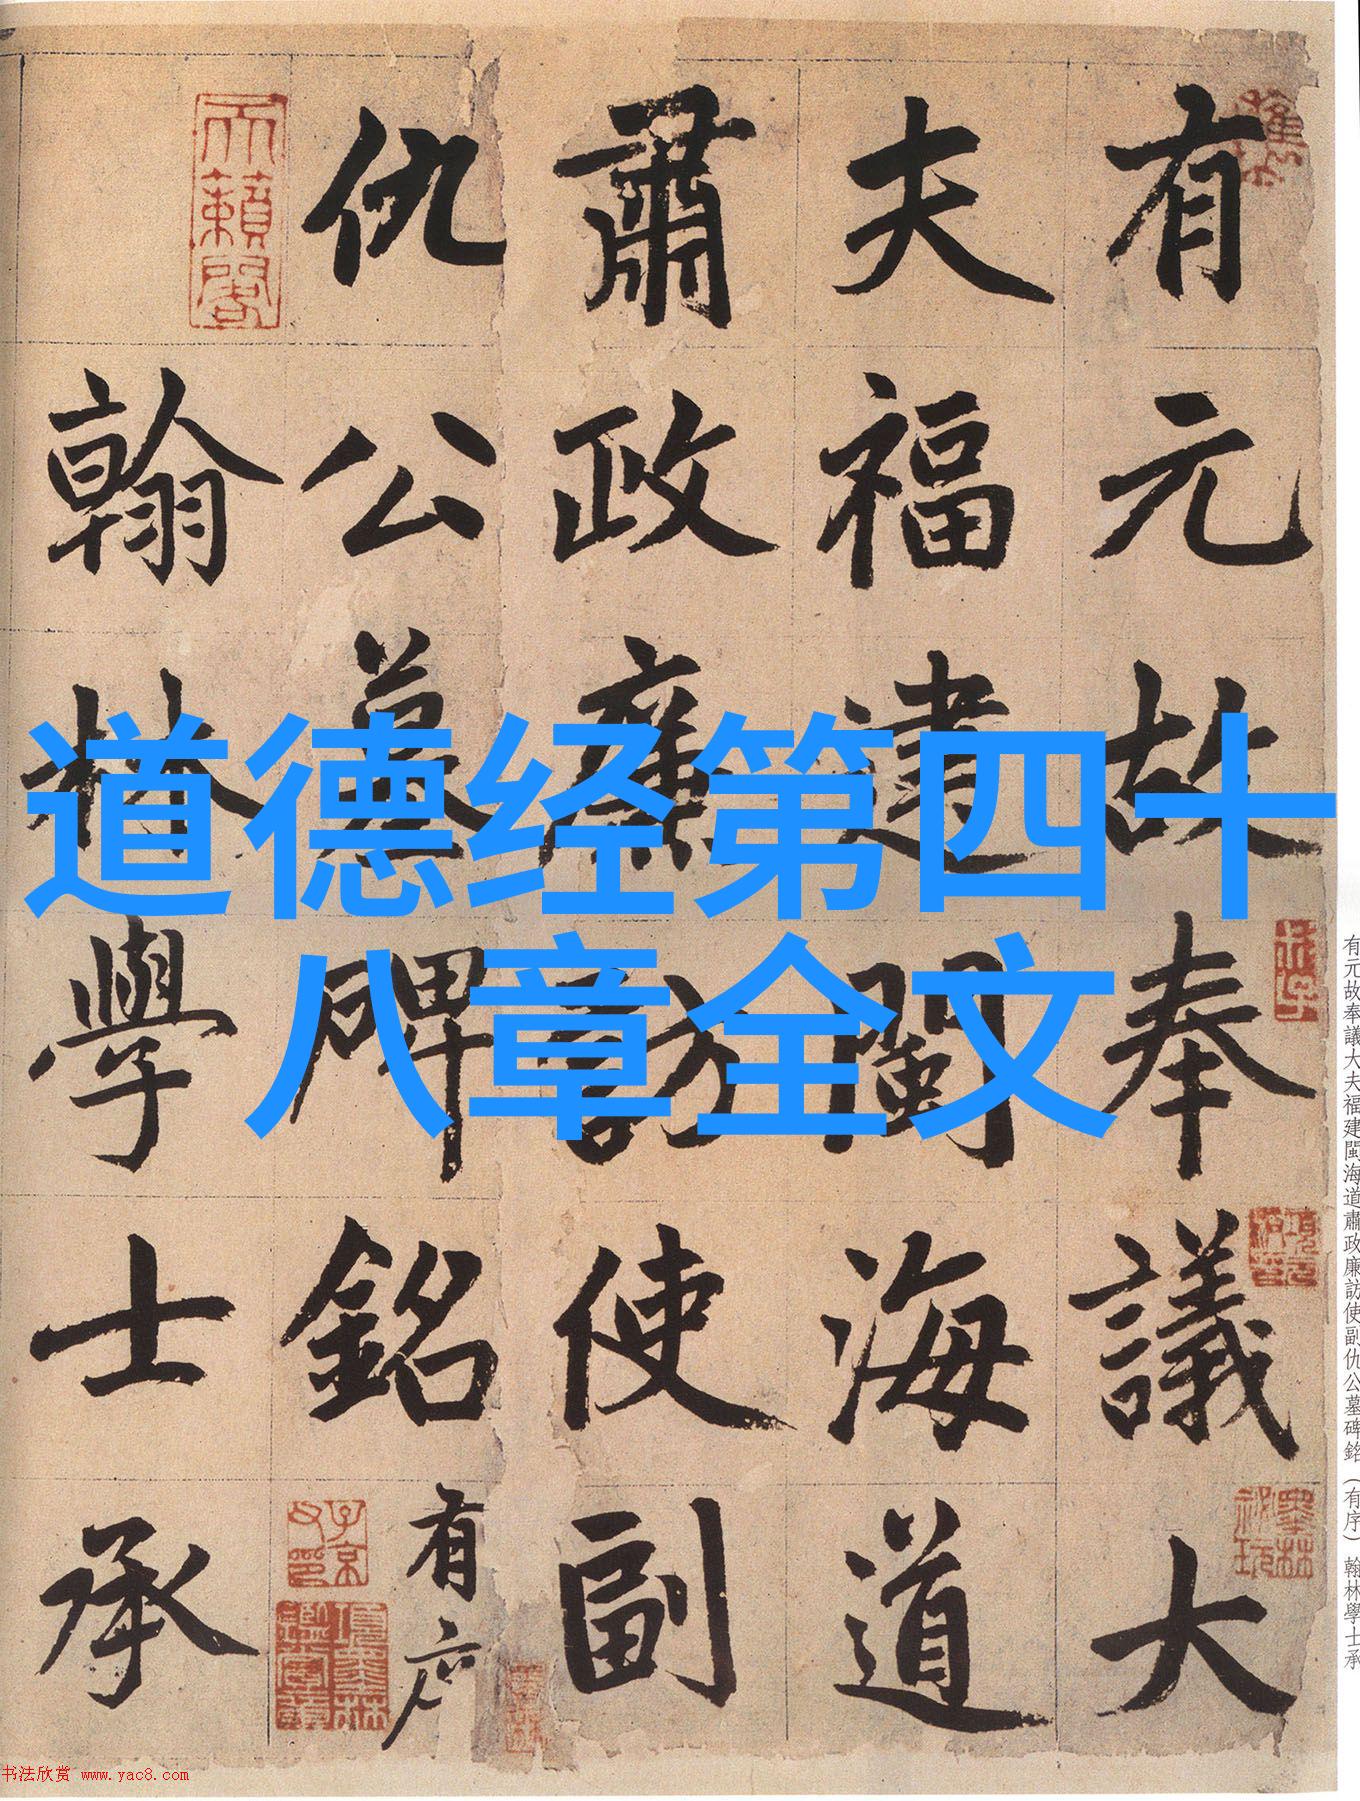 有元故奉議大
夫福建閩海道
肅政廉訪使副
仇公墓碑銘有序
翰林學士承
道德经第四十
八章全文
天籟閣
子京父印
項墨林鑑賞章
有元故奉議大夫福建閩海道肅政廉訪使副仇公墓碑銘（有序）翰林學士承
书法欣赏 www.yac8.com